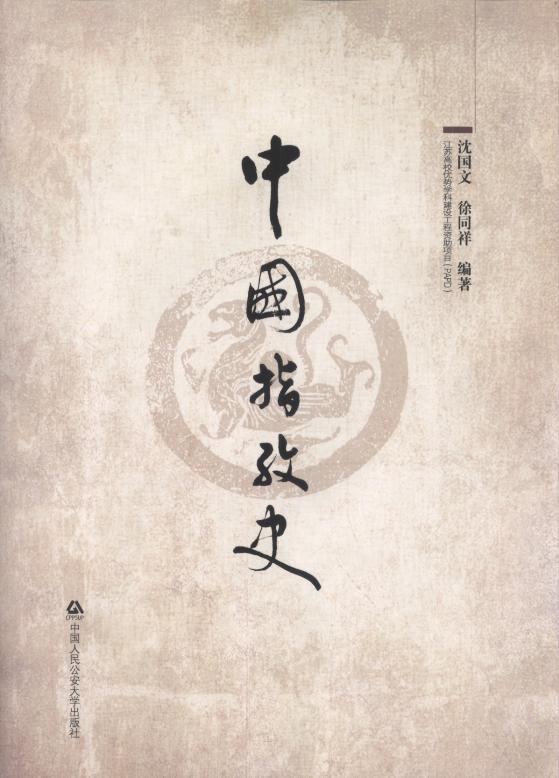 沈国文 徐同祥 编著
江苏高校优势学科建设工程资助项目（PAPD）
中國指纹史
CPPSUP
中国人民公安大学出版社